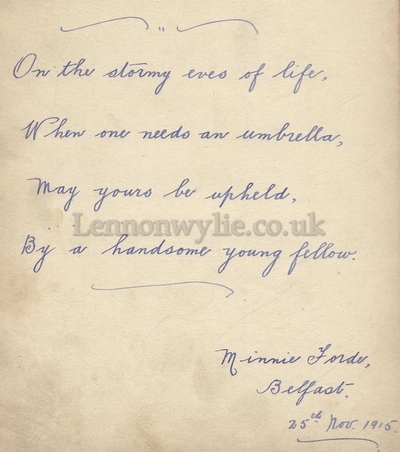 "
On the stormy eves of life,
When one needs an umbrella,
May yours be upheld,
Lennonwylie.co.uk
By a handsome young fellow.
Minnie Forde,
Belfast.
25th Nov. 1915.